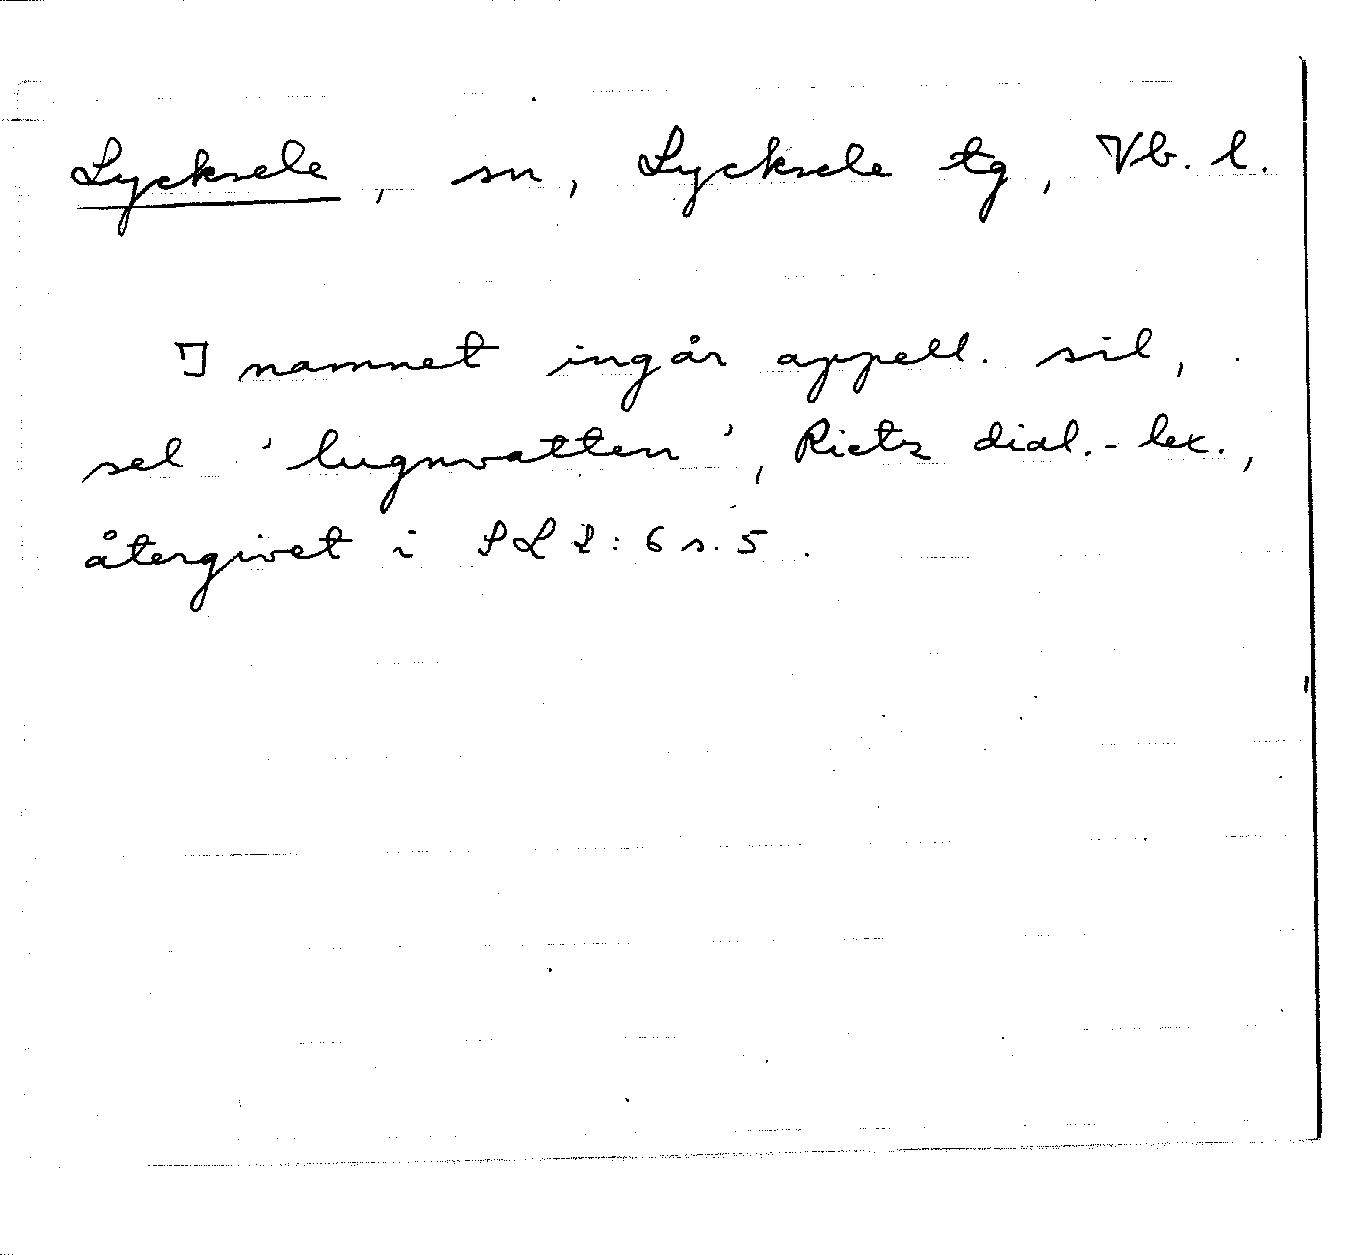 Lycksele, sn, Lycksele tg, Vb. l.
I namnet ingår appell. sil,
sel 'lugnvatten', Rietz dial.-lex.,
återgivet i SL 2:6 s. 5.